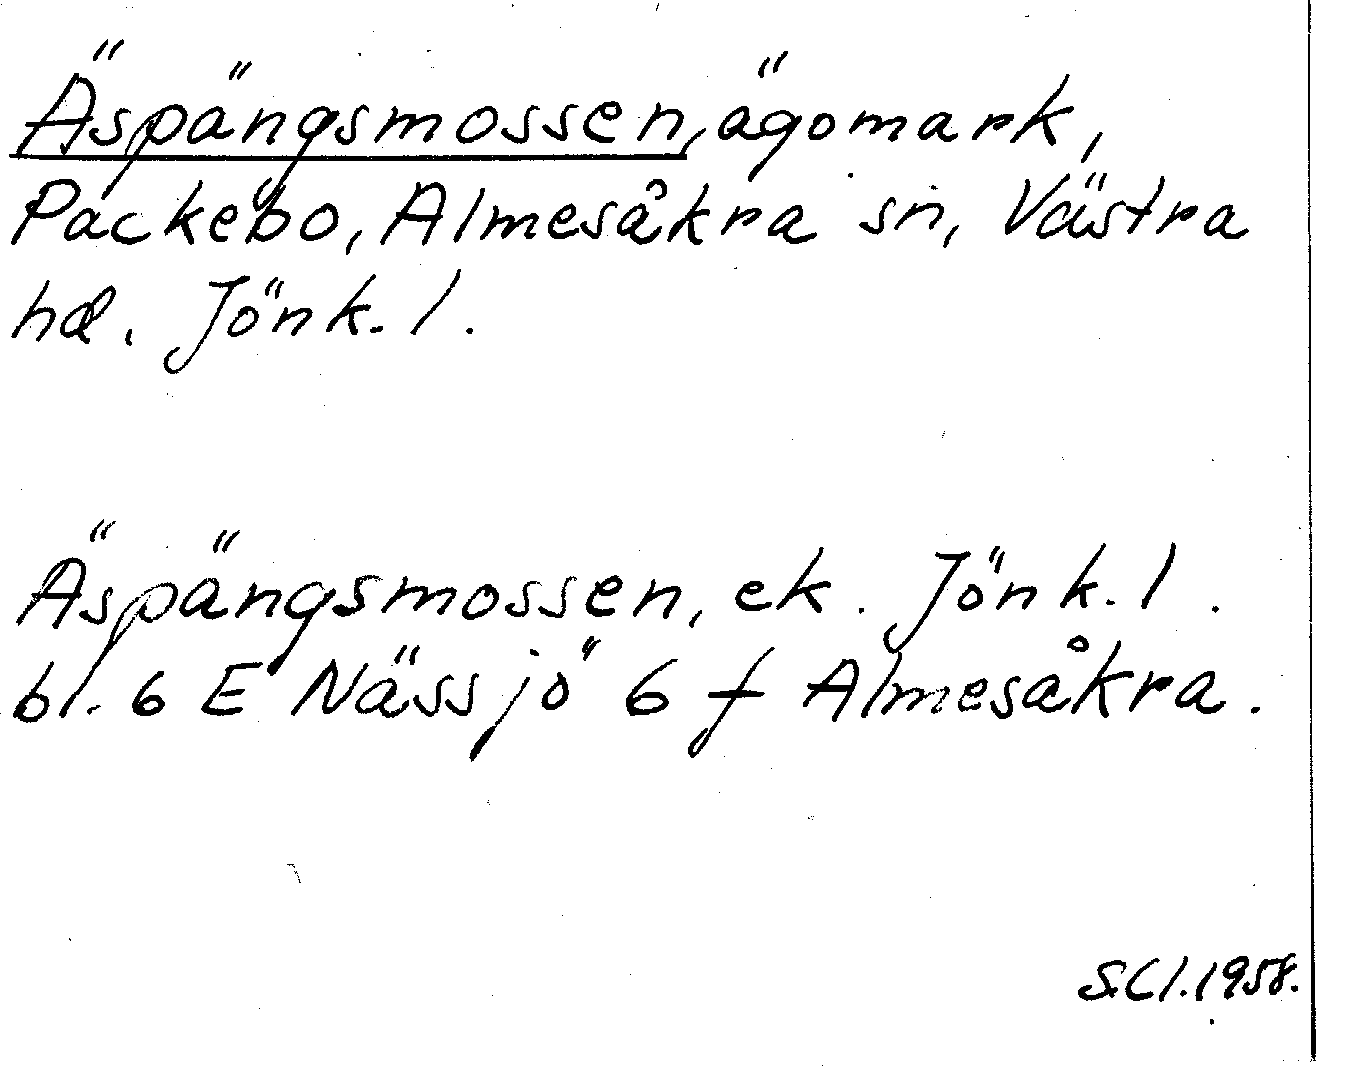 Äspängsmossen, ägomark,
Packebo, Almesåkra sn, Västra
hd. Jönk. l.
Äspängsmossen, ek. Jönk. l.
bl. 6 E Nässjö 6 f Almesåkra.
S.Cl. 1958.